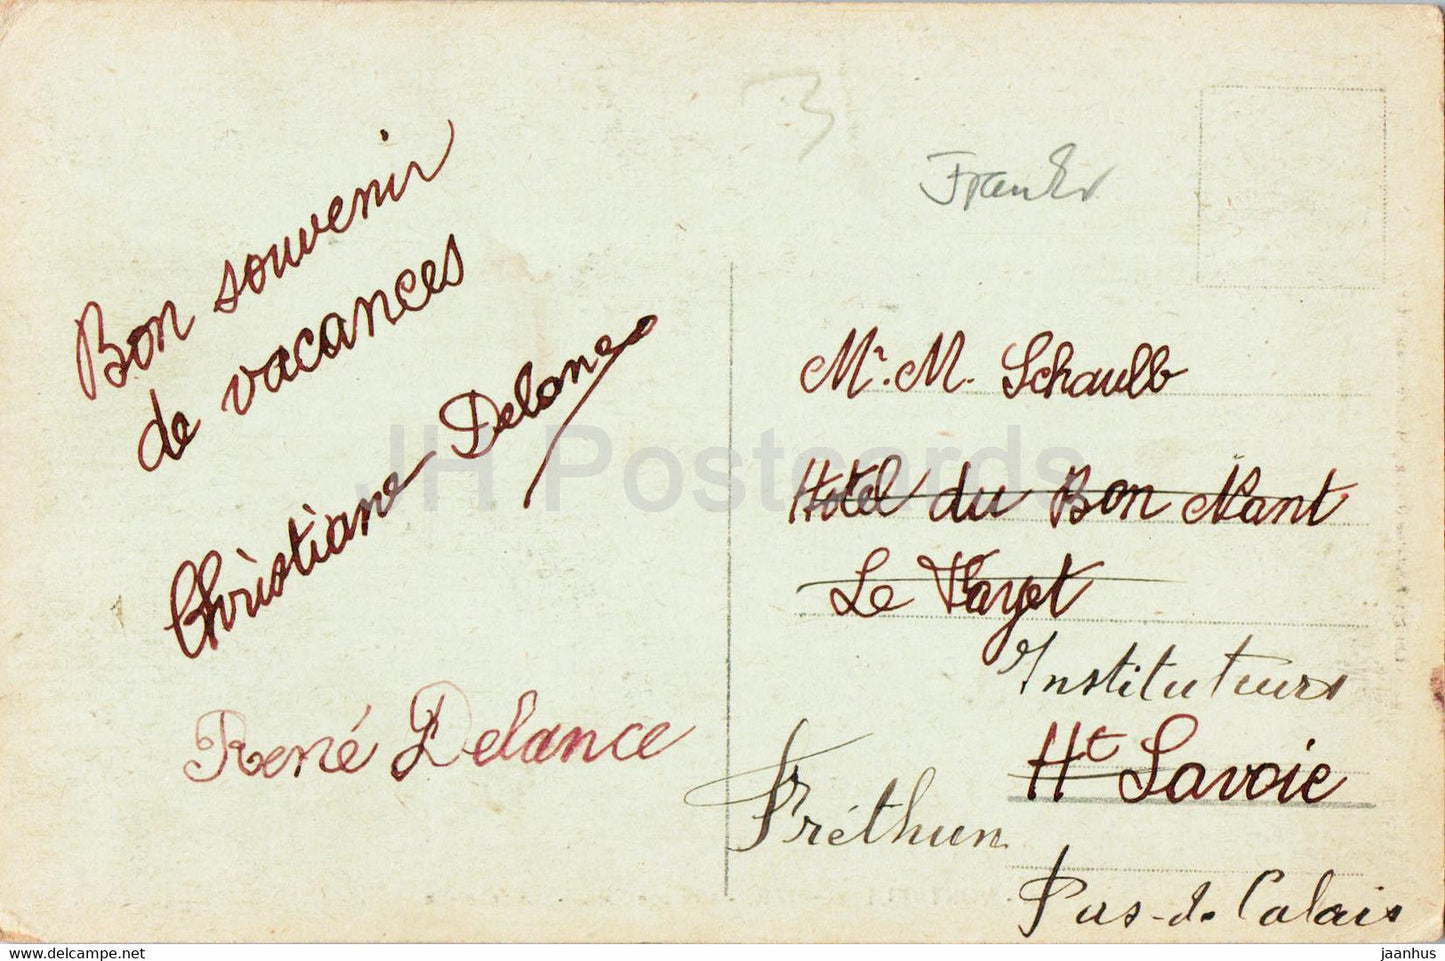 Bon souvenir
de vacances
Christiane Delance
René Delance
3
Mr. M. Schaulb
Hotel du Bon Nant
Le Fayet
Instituteurs
Ht Savoie
Fréthun
Pas-de Calais
JH Postcards
jaanhus